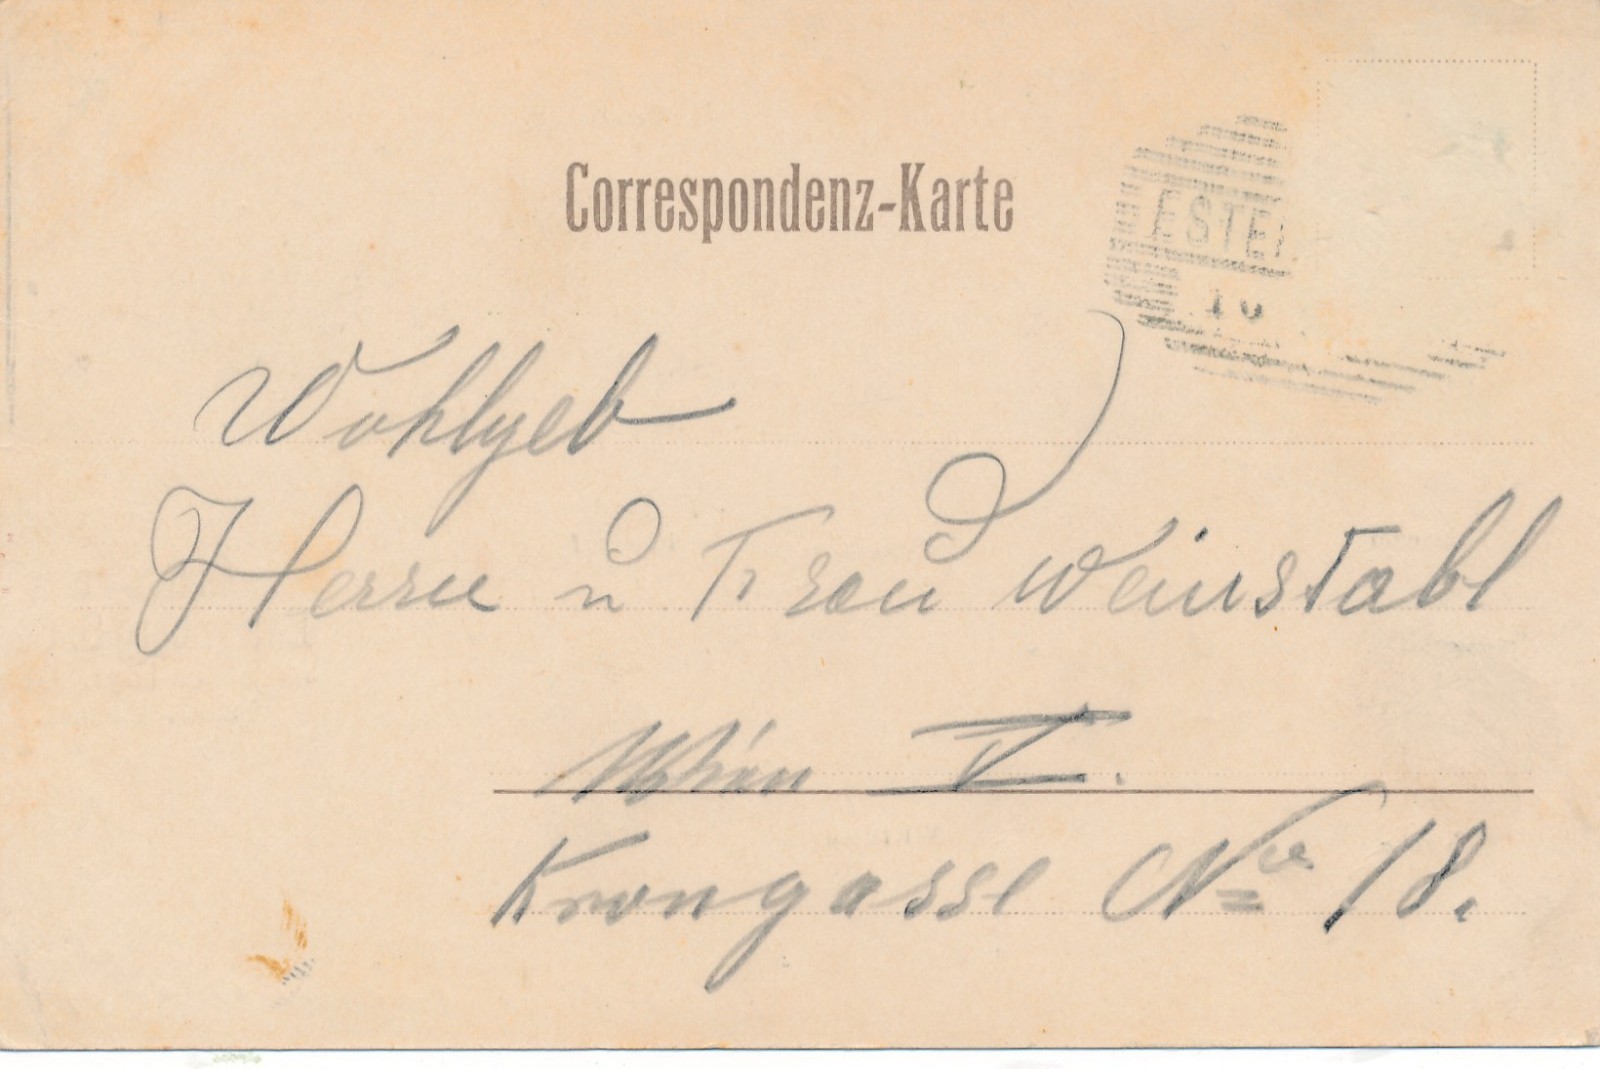 Correspondenz-Karte
ESTE
10
Wohlgeb
Herrn u Frau Weinstabl
Wien V.
Krongasse Nro 18.